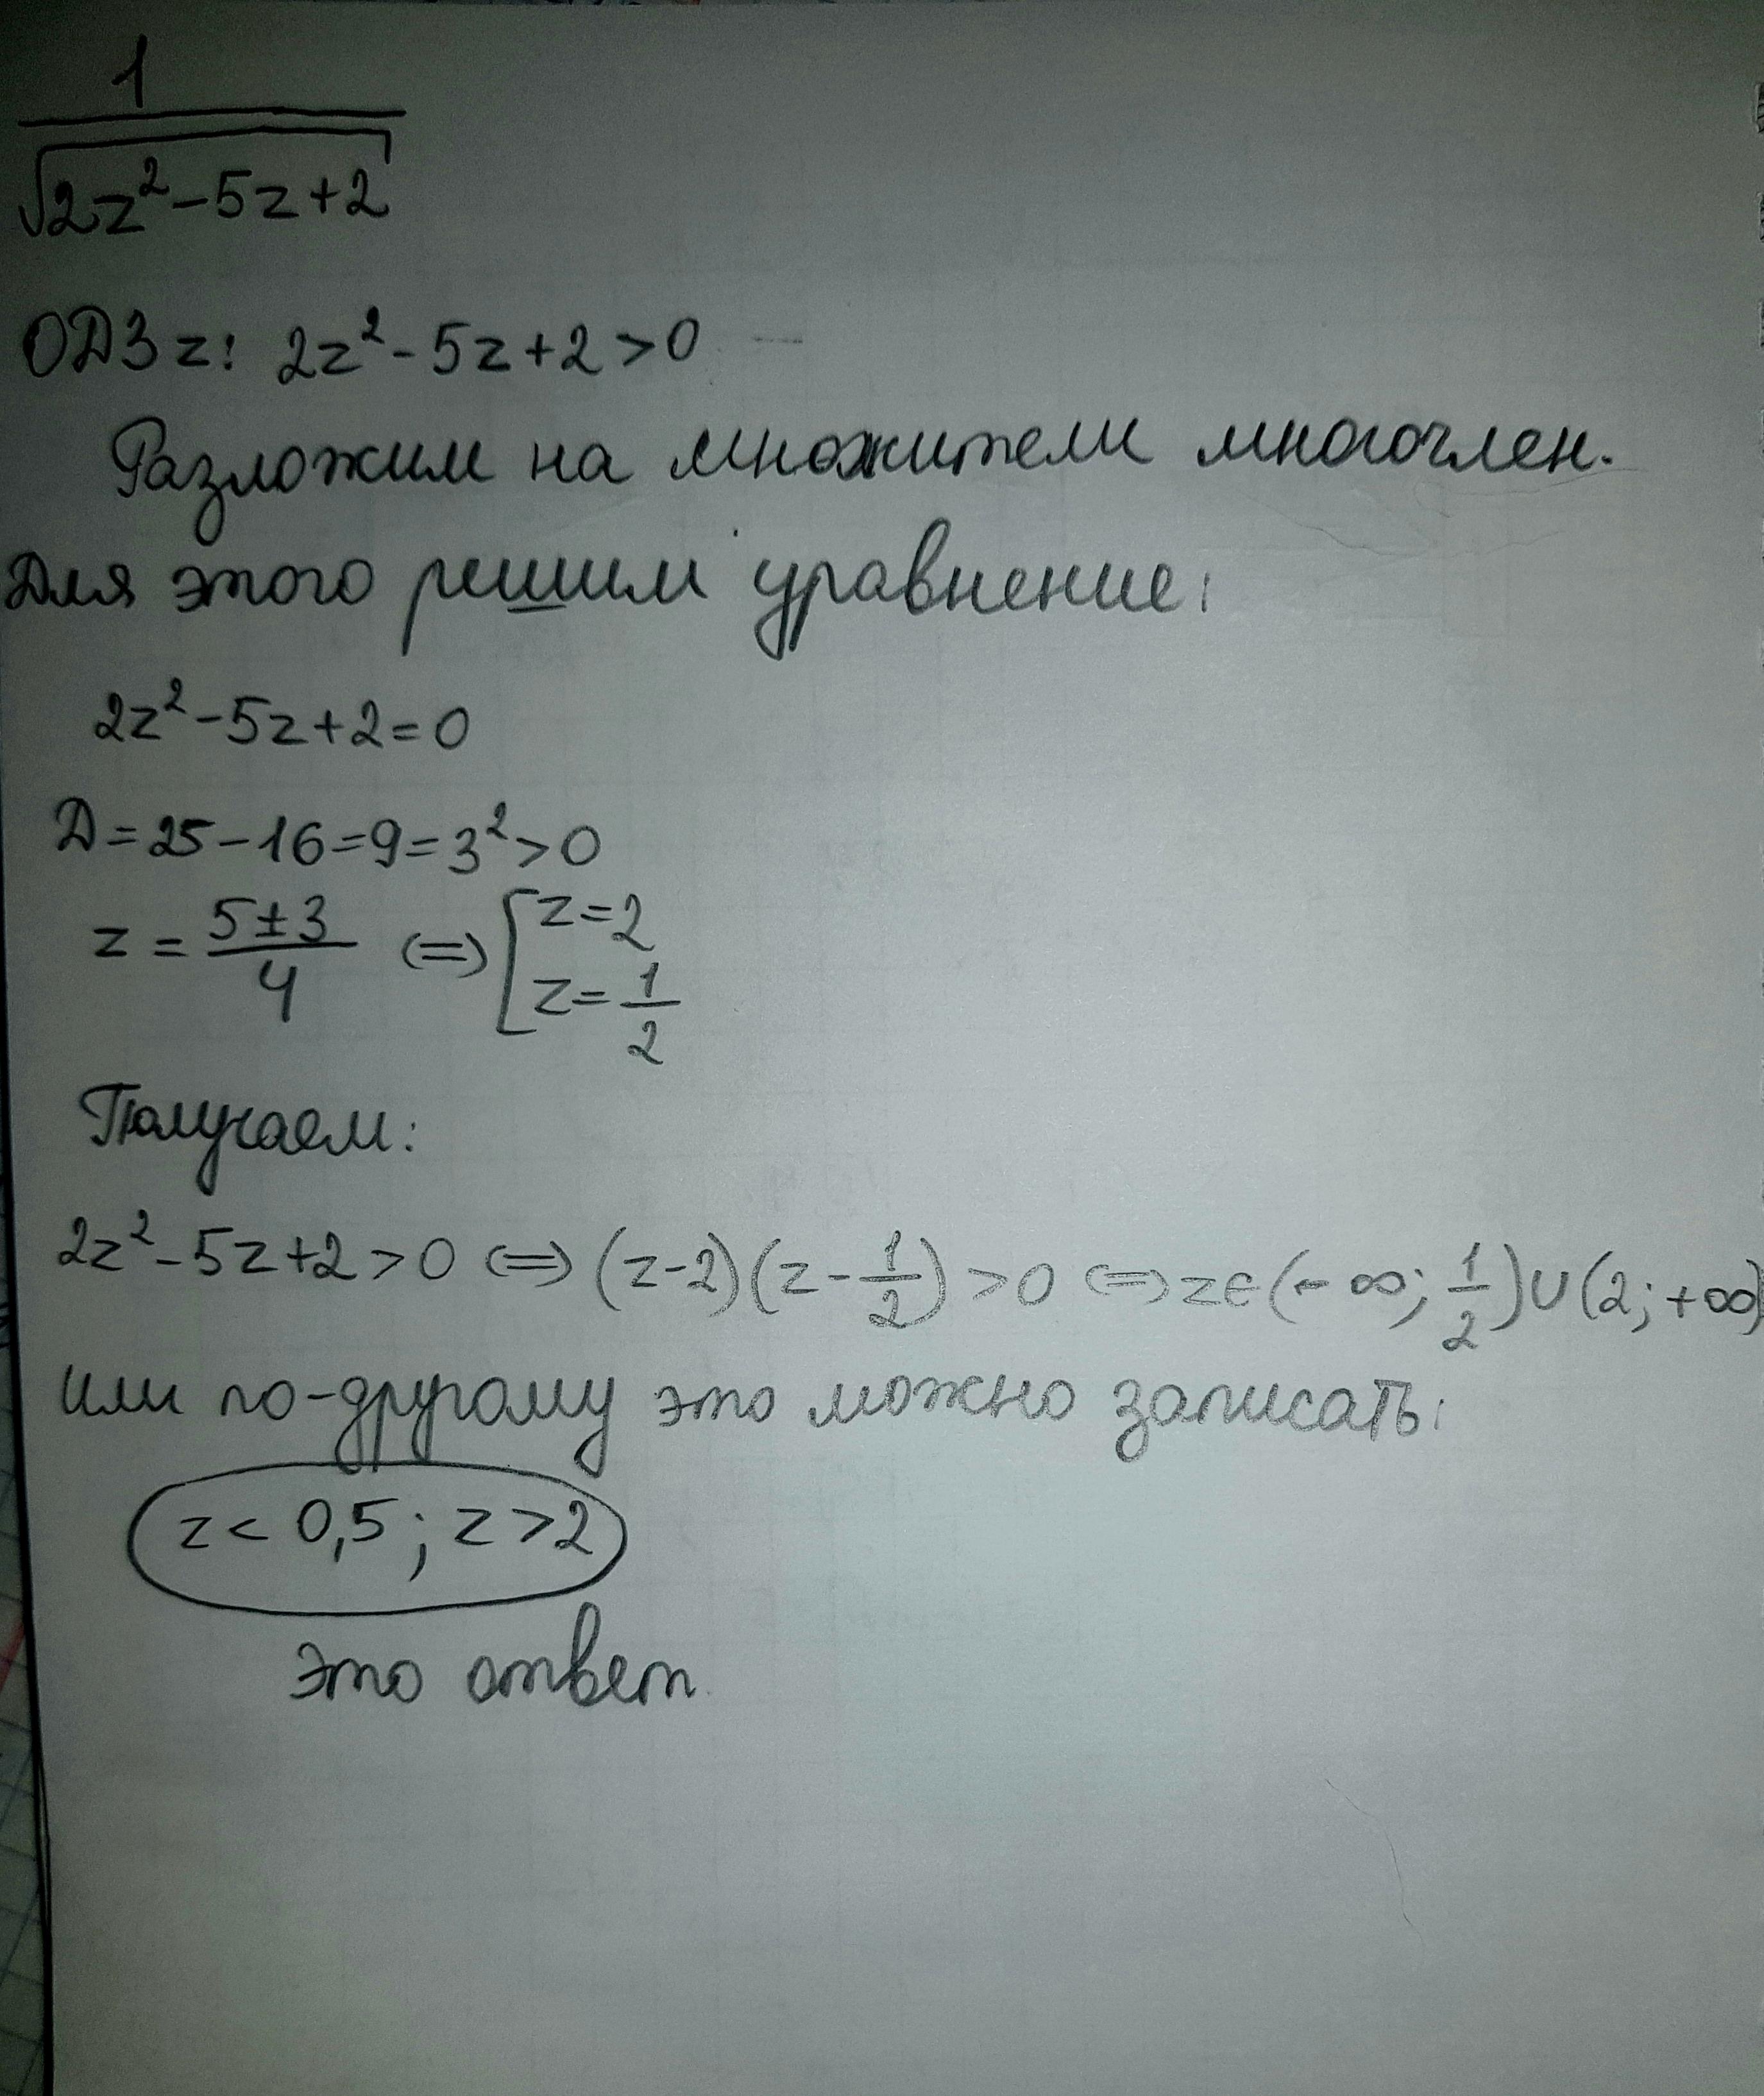 1
√2z²-5z+2
ОДЗ z: 2z²-5z+2>0
Разложим на множители многочлен.
Для этого решим уравнение:
2z²-5z+2=0
Д=25-16=9=3²>0
z = (5±3)/4 (=) [z=2
z=1/2
Получаем:
2z²-5z+2>0 (=) (z-2)(z-1/2)>0 (=) z∈(-∞; 1/2)∪(2; +∞)
или по-другому это можно записать:
z<0,5; z>2
это ответ.